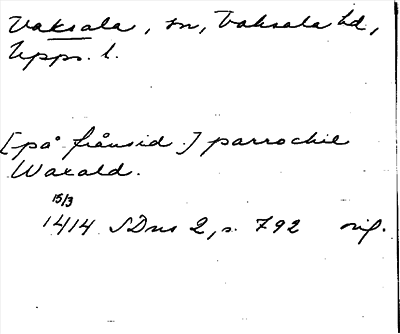 Vaksala, sn, Vaksala hd,
Upps. l.
[på frånsid.] parrochie
Waxald.
15/3
1414 SDns 2, s. 792 orig.